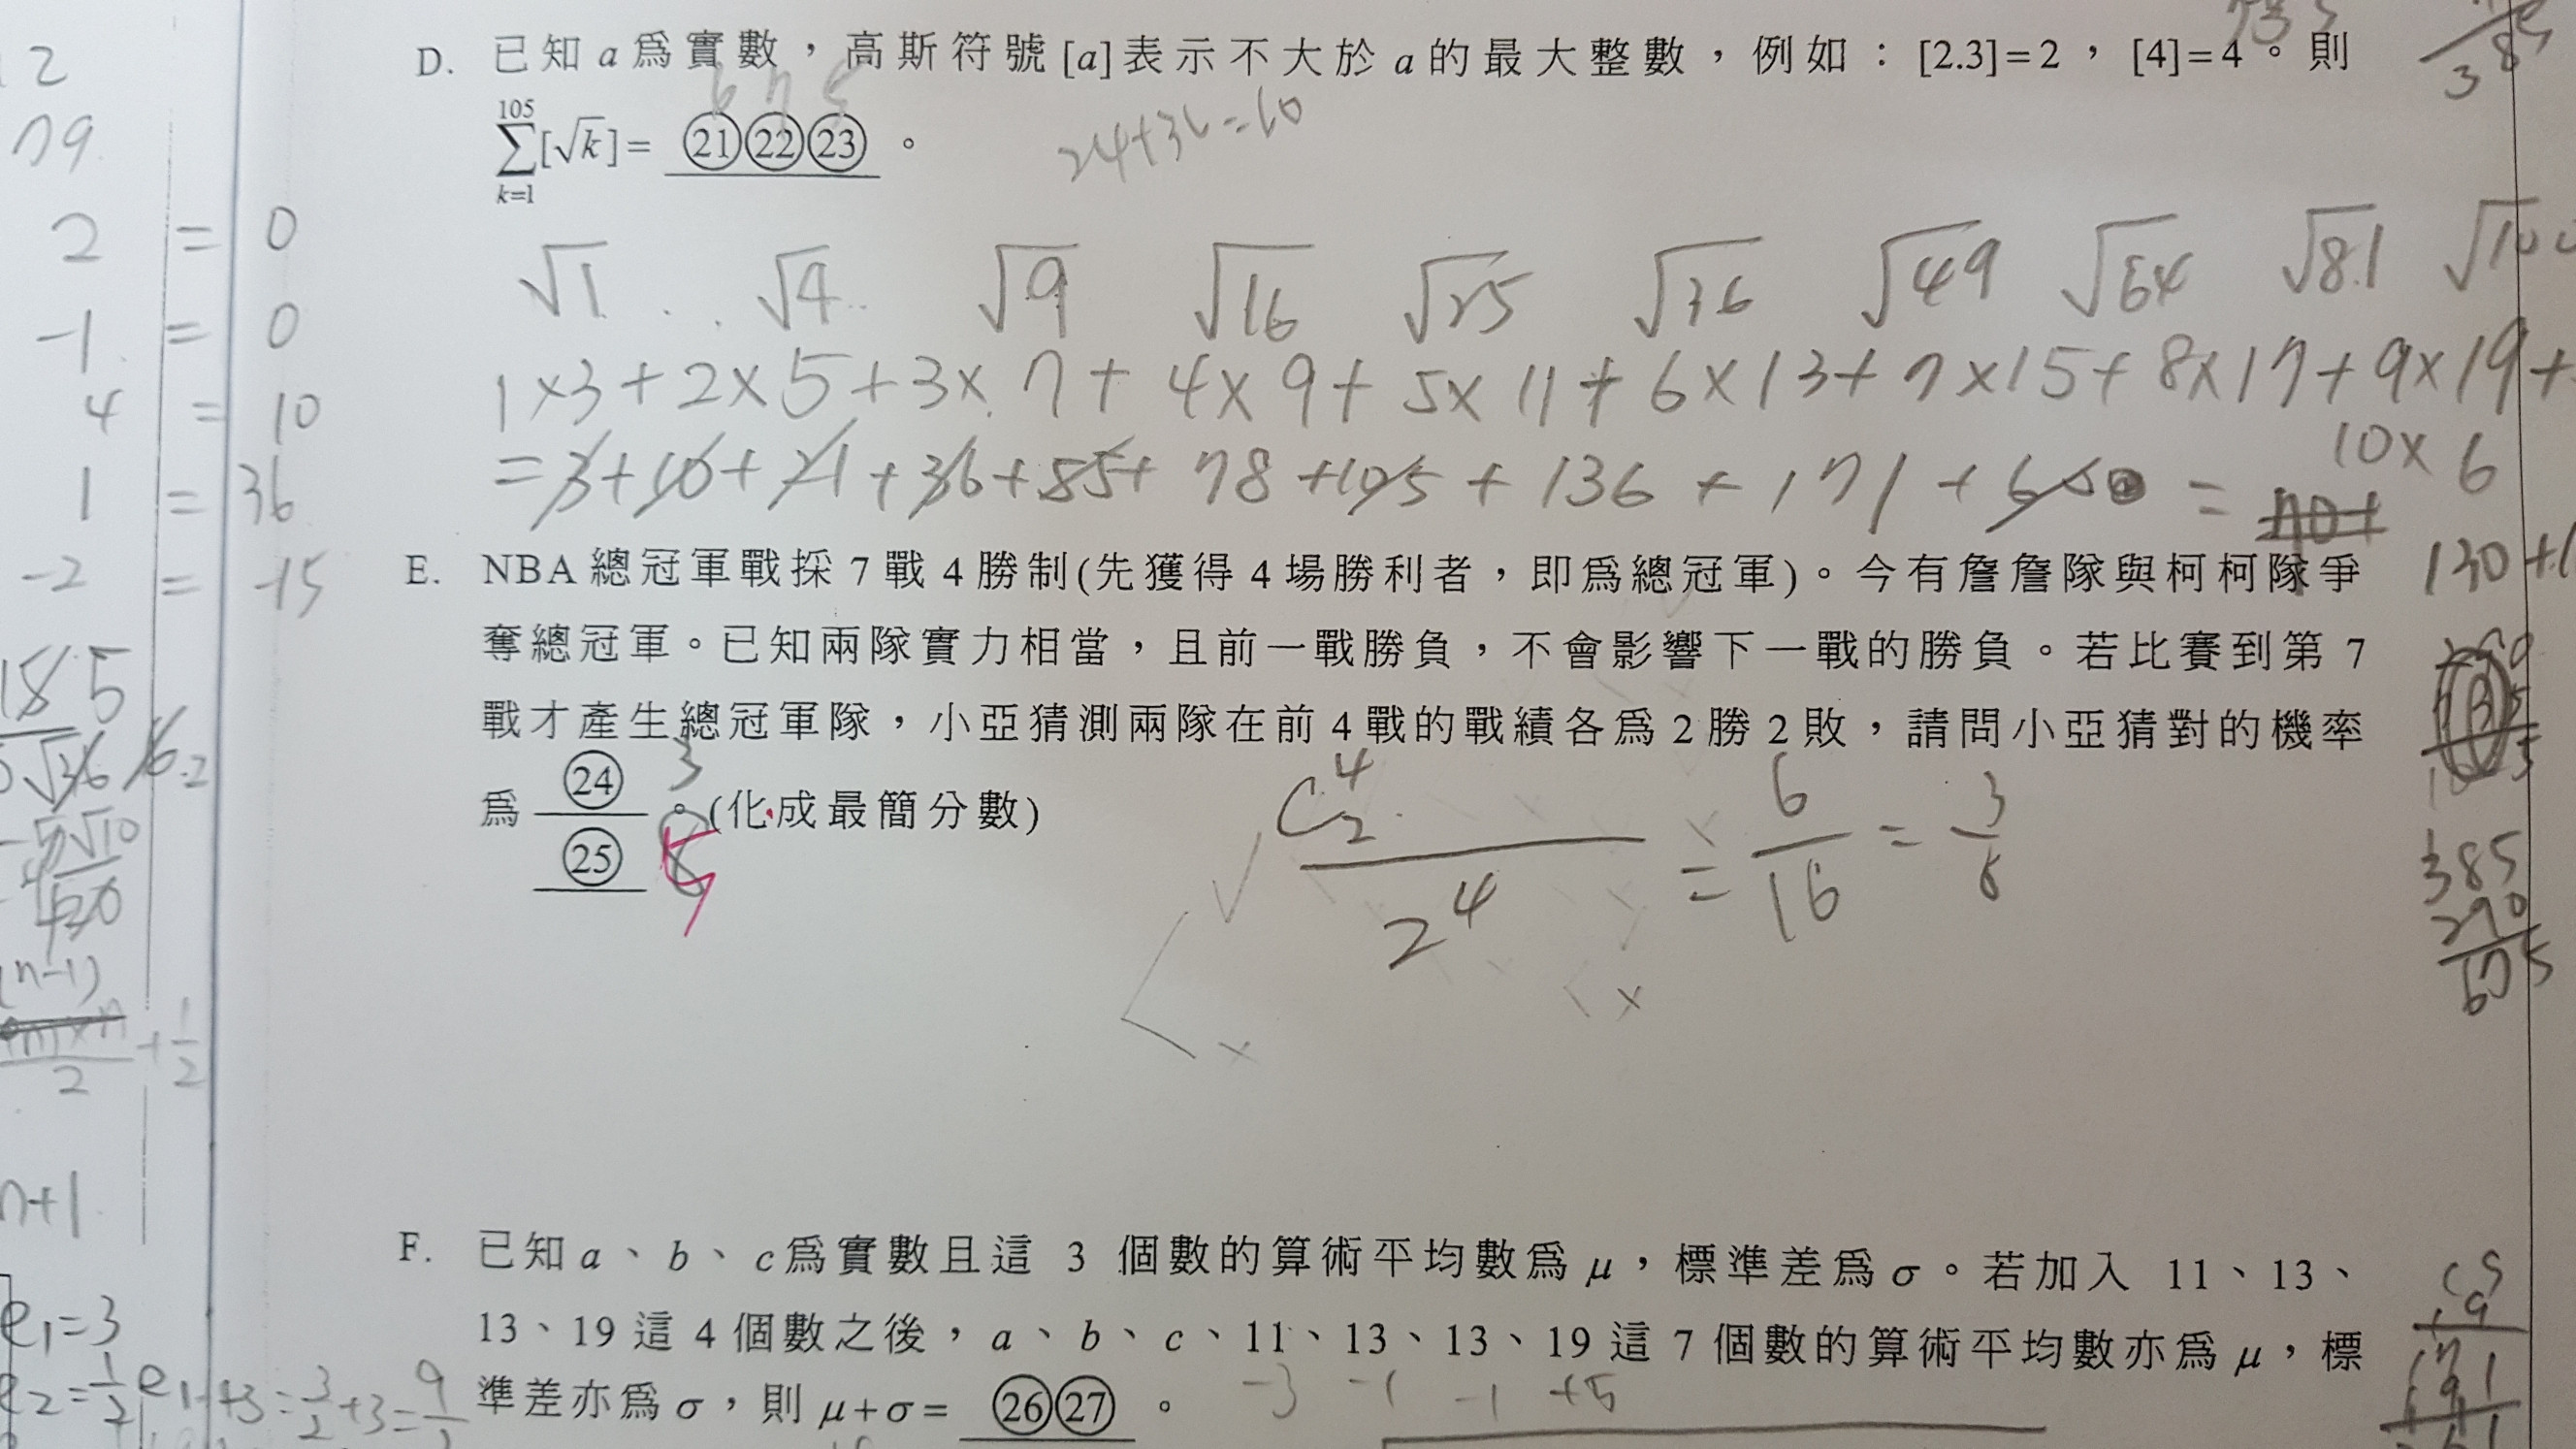 D. 已知 a 為實數，高斯符號 [a] 表示不大於 a 的最大整數，例如：[2.3]=2，[4]=4。則
105
∑[√k]= ㉑㉒㉓ 。
k=1
6 7 5
24+36=60
√1 . . √4 .. √9 √16 √25 √36 √49 √64 √81 √100
1×3+2×5+3×7+4×9+5×11+6×13+7×15+8×17+9×19+
10×6
=3+10+21+36+55+78+105+136+171+60=
E. NBA 總冠軍戰採 7 戰 4 勝制(先獲得 4 場勝利者，即為總冠軍)。今有詹詹隊與柯柯隊爭
奪總冠軍。已知兩隊實力相當，且前一戰勝負，不會影響下一戰的勝負。若比賽到第 7
戰才產生總冠軍隊，小亞猜測兩隊在前 4 戰的戰績各為 2 勝 2 敗，請問小亞猜對的機率
為 ㉔/㉕ 。(化成最簡分數)
3
5
C⁴₂/2⁴ = 6/16 = 3/8
385
290
675
F. 已知 a、b、c 為實數且這 3 個數的算術平均數為 μ，標準差為 σ。若加入 11、13、
13、19 這 4 個數之後，a、b、c、11、13、13、19 這 7 個數的算術平均數亦為 μ，標
準差亦為 σ，則 μ+σ= ㉖㉗ 。
-3 -1 -1 +5
2 = 0
-1 = 0
4 = 10
1 = 36
-2 = -15
n+1
e₁=3
e₂=1/2 e₁+3=3/2+3=9/2